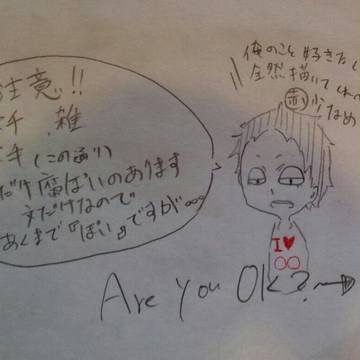 注意!!
チ 雑
キ(この通り)
だけ腐ぽいのあります
だけなので
あくまで『ぽい』ですが。。。
俺のこと好きだ
全然描いて
赤少なめ
I♥
○○
Are you OK?